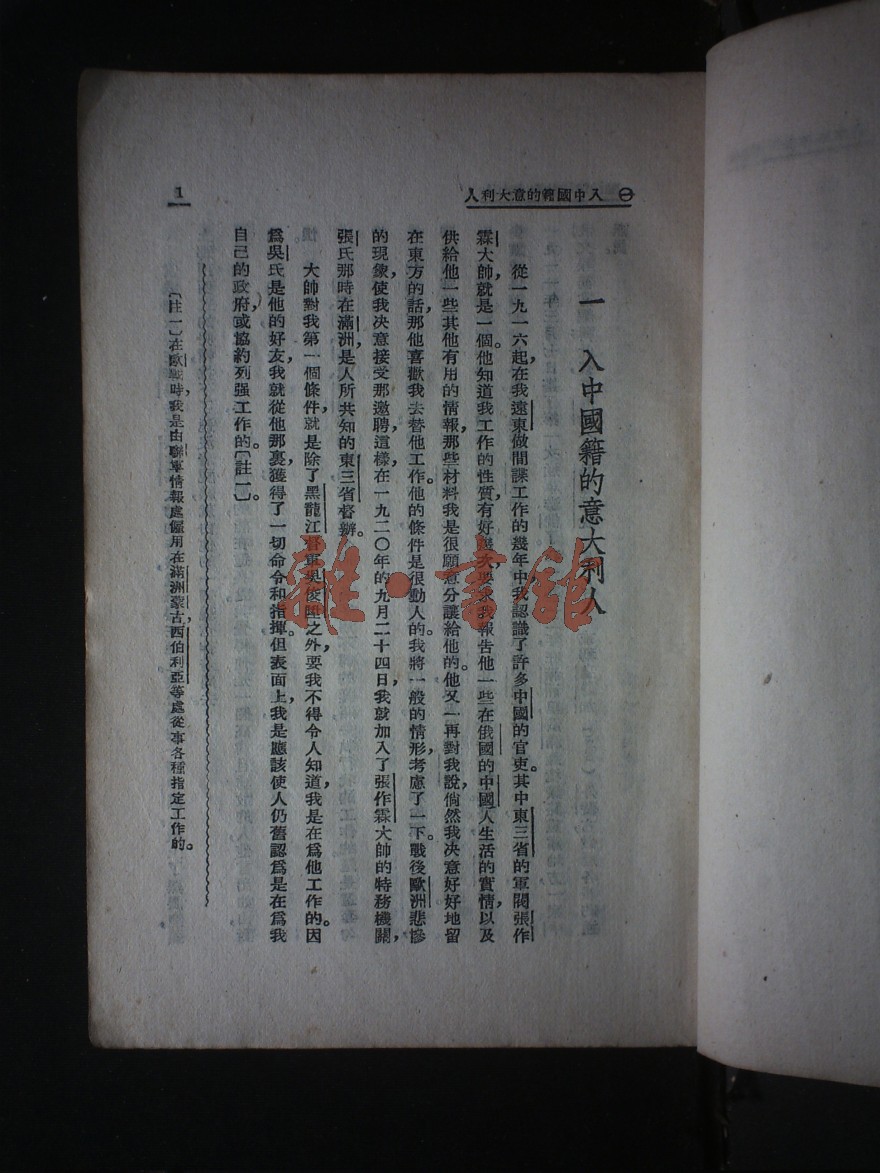 ㊀ 入中國籍的意大利人
一 入中國籍的意大利人
從一九一六起，在我遠東做間諜工作的幾年中，我認識了許多中國的官吏。其中東三省的軍閥張作
霖大帥，就是一個。他知道我工作的性質，有好幾次要求我報告他一些在俄國的中國人生活的實情，以及
供給他一些其他有用的情報，那些材料我是很願意分讓給他的。他又一再對我說，倘然我决意好好地留
在東方的話，那他喜歡我去替他工作。他的條件是很動人的。我將一般的情形，考慮了一下。戰後歐洲悲慘
的現象，使我决意接受那邀聘，這樣，在一九二〇年的九月二十四日，我就加入了張作霖大帥的特務機關，
張氏那時在滿洲，是人所共知的東三省督辦。
大帥對我第一個條件，就是除了黑龍江督軍吳俊陞之外，要我不得令人知道，我是在爲他工作的。因
爲吳氏是他的好友，我就從他那裏獲得了一切命令和指揮。但表面上，我是應該使人仍舊認爲是在爲我
自己的政府，或協約列强工作的。〔註一〕。
〔註一〕在歐戰時，我是由聯軍情報處僱用在滿洲蒙古西伯利亞等處從事各種指定工作的。
1
雜·書館